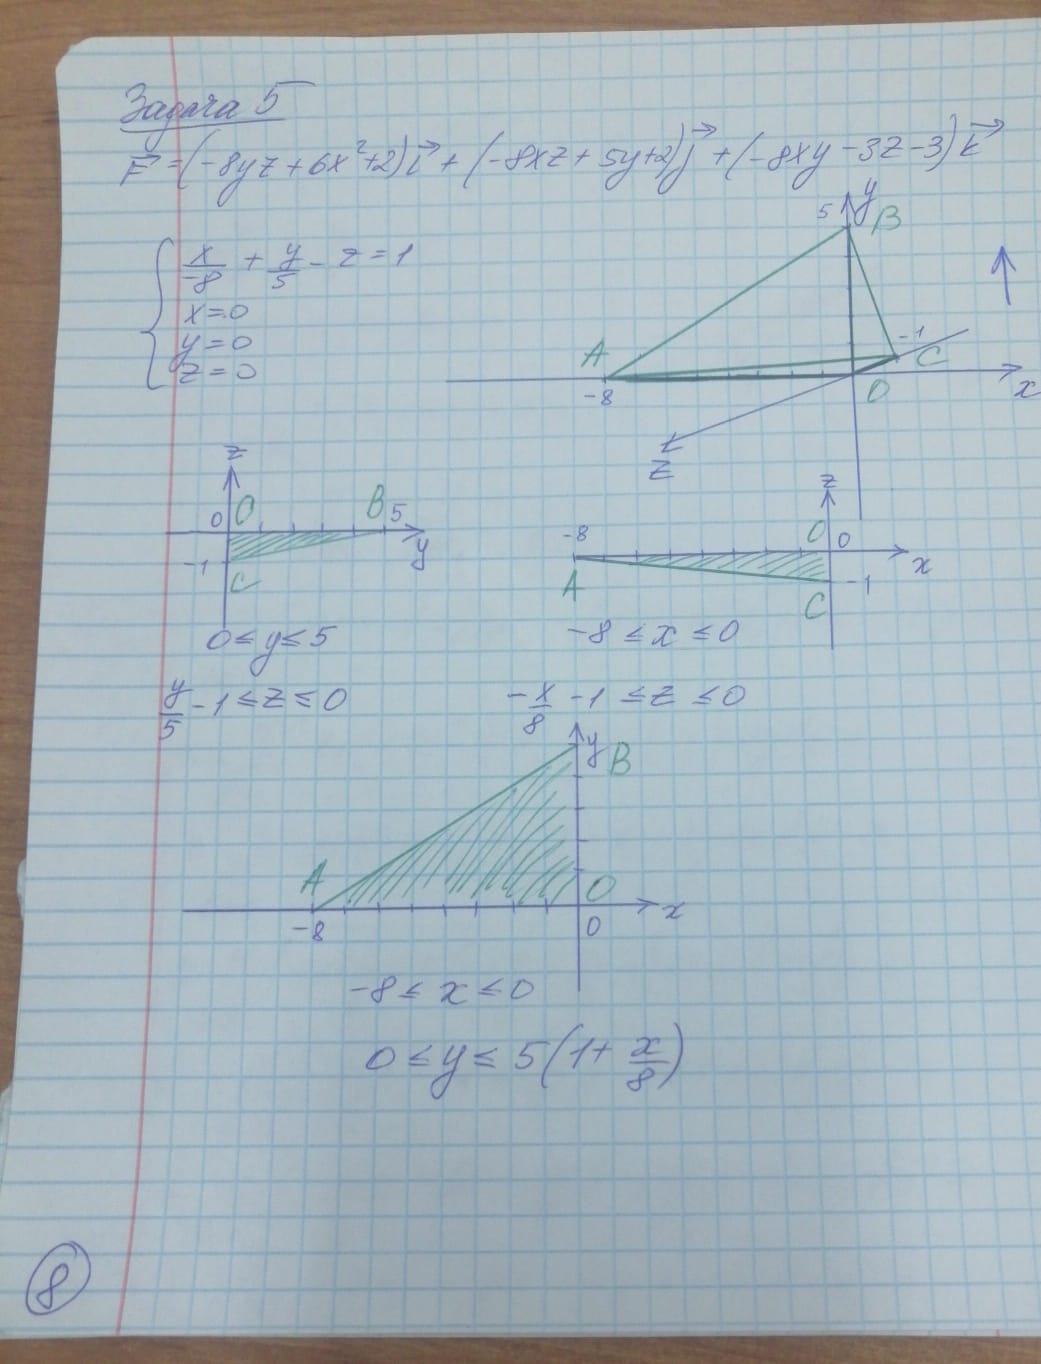 Задача 5
F⃗ = (-8yz + 6x² + 2) i⃗ + (-8xz + 5y + 2) j⃗ + (-8xy - 3z - 3) k⃗
x/-8 + y/5 - z = 1
x = 0
y = 0
z = 0
5 y B
A -1 C
-8 O x
z
z
0 O B 5
-1 y
C
0 ≤ y ≤ 5
y/5 - 1 ≤ z ≤ 0
z
-8 O 0
A x
C -1
-8 ≤ x ≤ 0
-x/8 - 1 ≤ z ≤ 0
y B
A O
-8 0 x
-8 ≤ x ≤ 0
0 ≤ y ≤ 5(1 + x/8)
8